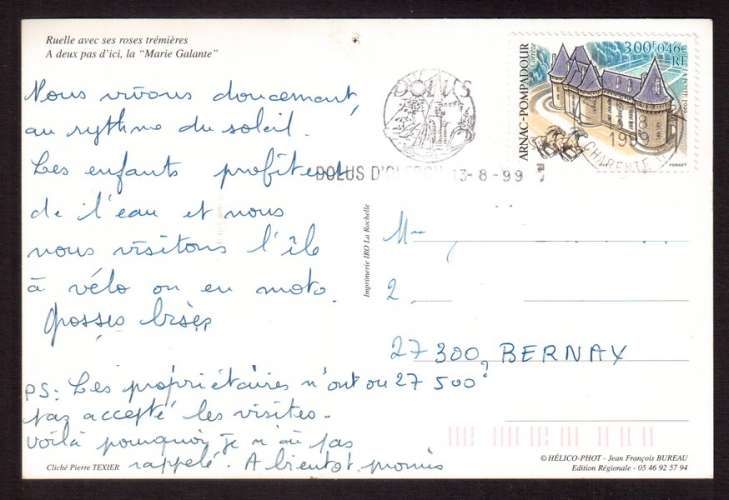 Ruelle avec ses roses trémières
A deux pas d'ici, la "Marie Galante"
Nous vivons doucement,
au rythme du soleil.
Les enfants profitent
de l'eau et nous
nous visitons l'île
à vélo ou en moto.
Grosses bises
PS: Les propriétaires n'ont
pas accepté les visites.
Voilà pourquoi je n'ai pas
rappelé. A bientot, promis
Cliché Pierre TEXIER
Imprimerie IRO La Rochelle
DOLUS
DOLUS D' 13-8-99
3,00 0,46€
RF
ARNAC-POMPADOUR
1999
CHARENTE
M
2
27300, BERNAY
ou 27500
©HÉLICO-PHOT - Jean François BUREAU
Edition Régionale - 05 46 92 57 94